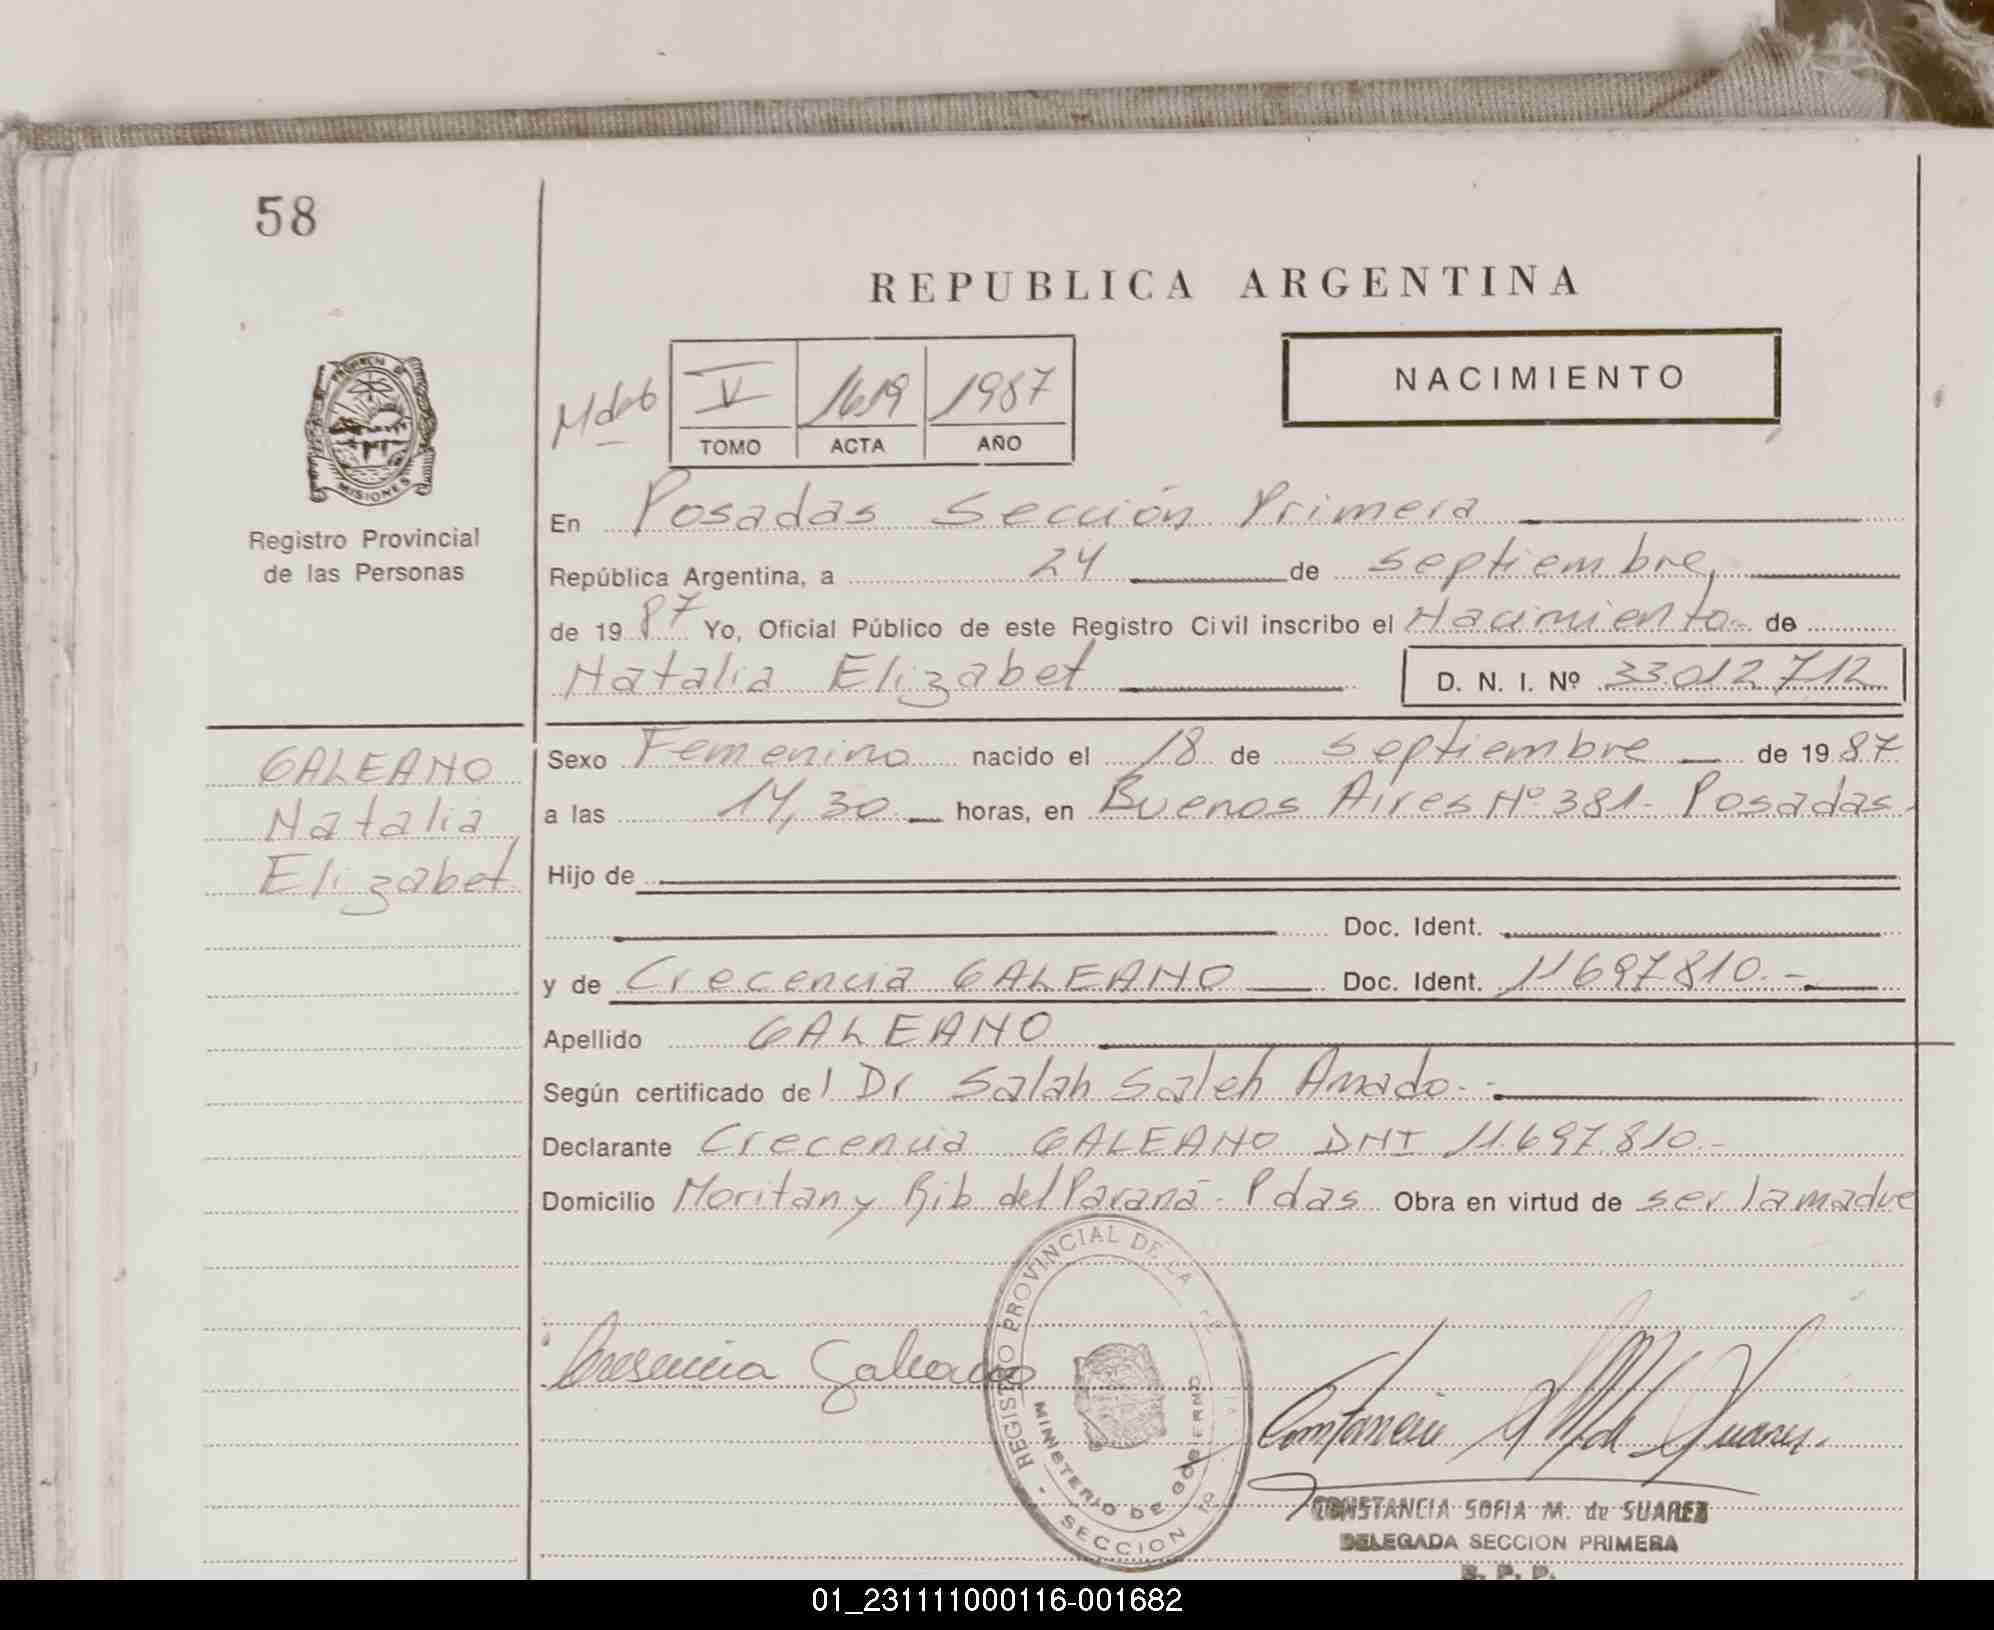 58
REPUBLICA ARGENTINA
V 1619 1987
TOMO ACTA AÑO
NACIMIENTO
MISIONES
Registro Provincial
de las Personas
En Posadas Sección Primera
República Argentina, a 24 de septiembre,
de 19 87 Yo, Oficial Público de este Registro Civil inscribo el Nacimiento de
Natalia Elizabet D. N. I. Nº 33.012.712
GALEANO
Natalia
Elizabet
Sexo Femenino nacido el 18 de septiembre de 19 87
a las 14,30 horas, en Buenos Aires Nº 381- Posadas.
Hijo de
Doc. Ident.
y de Crecencia GALEANO Doc. Ident. 11697810.-
Apellido GALEANO
Según certificado del Dr Salah Saleh Amado.-
Declarante Crecencia GALEANO DNI 11.697.810.-
Domicilio Moritan y Rib del Paraná- Pdas Obra en virtud de ser la madre
REGISTRO PROVINCIAL DE LA
MINISTERIO DE GOBIERNO
SECCION
Cresencia Galeano
CONSTANCIA SOFIA M. de SUAREZ
DELEGADA SECCION PRIMERA
01_231111000116-001682